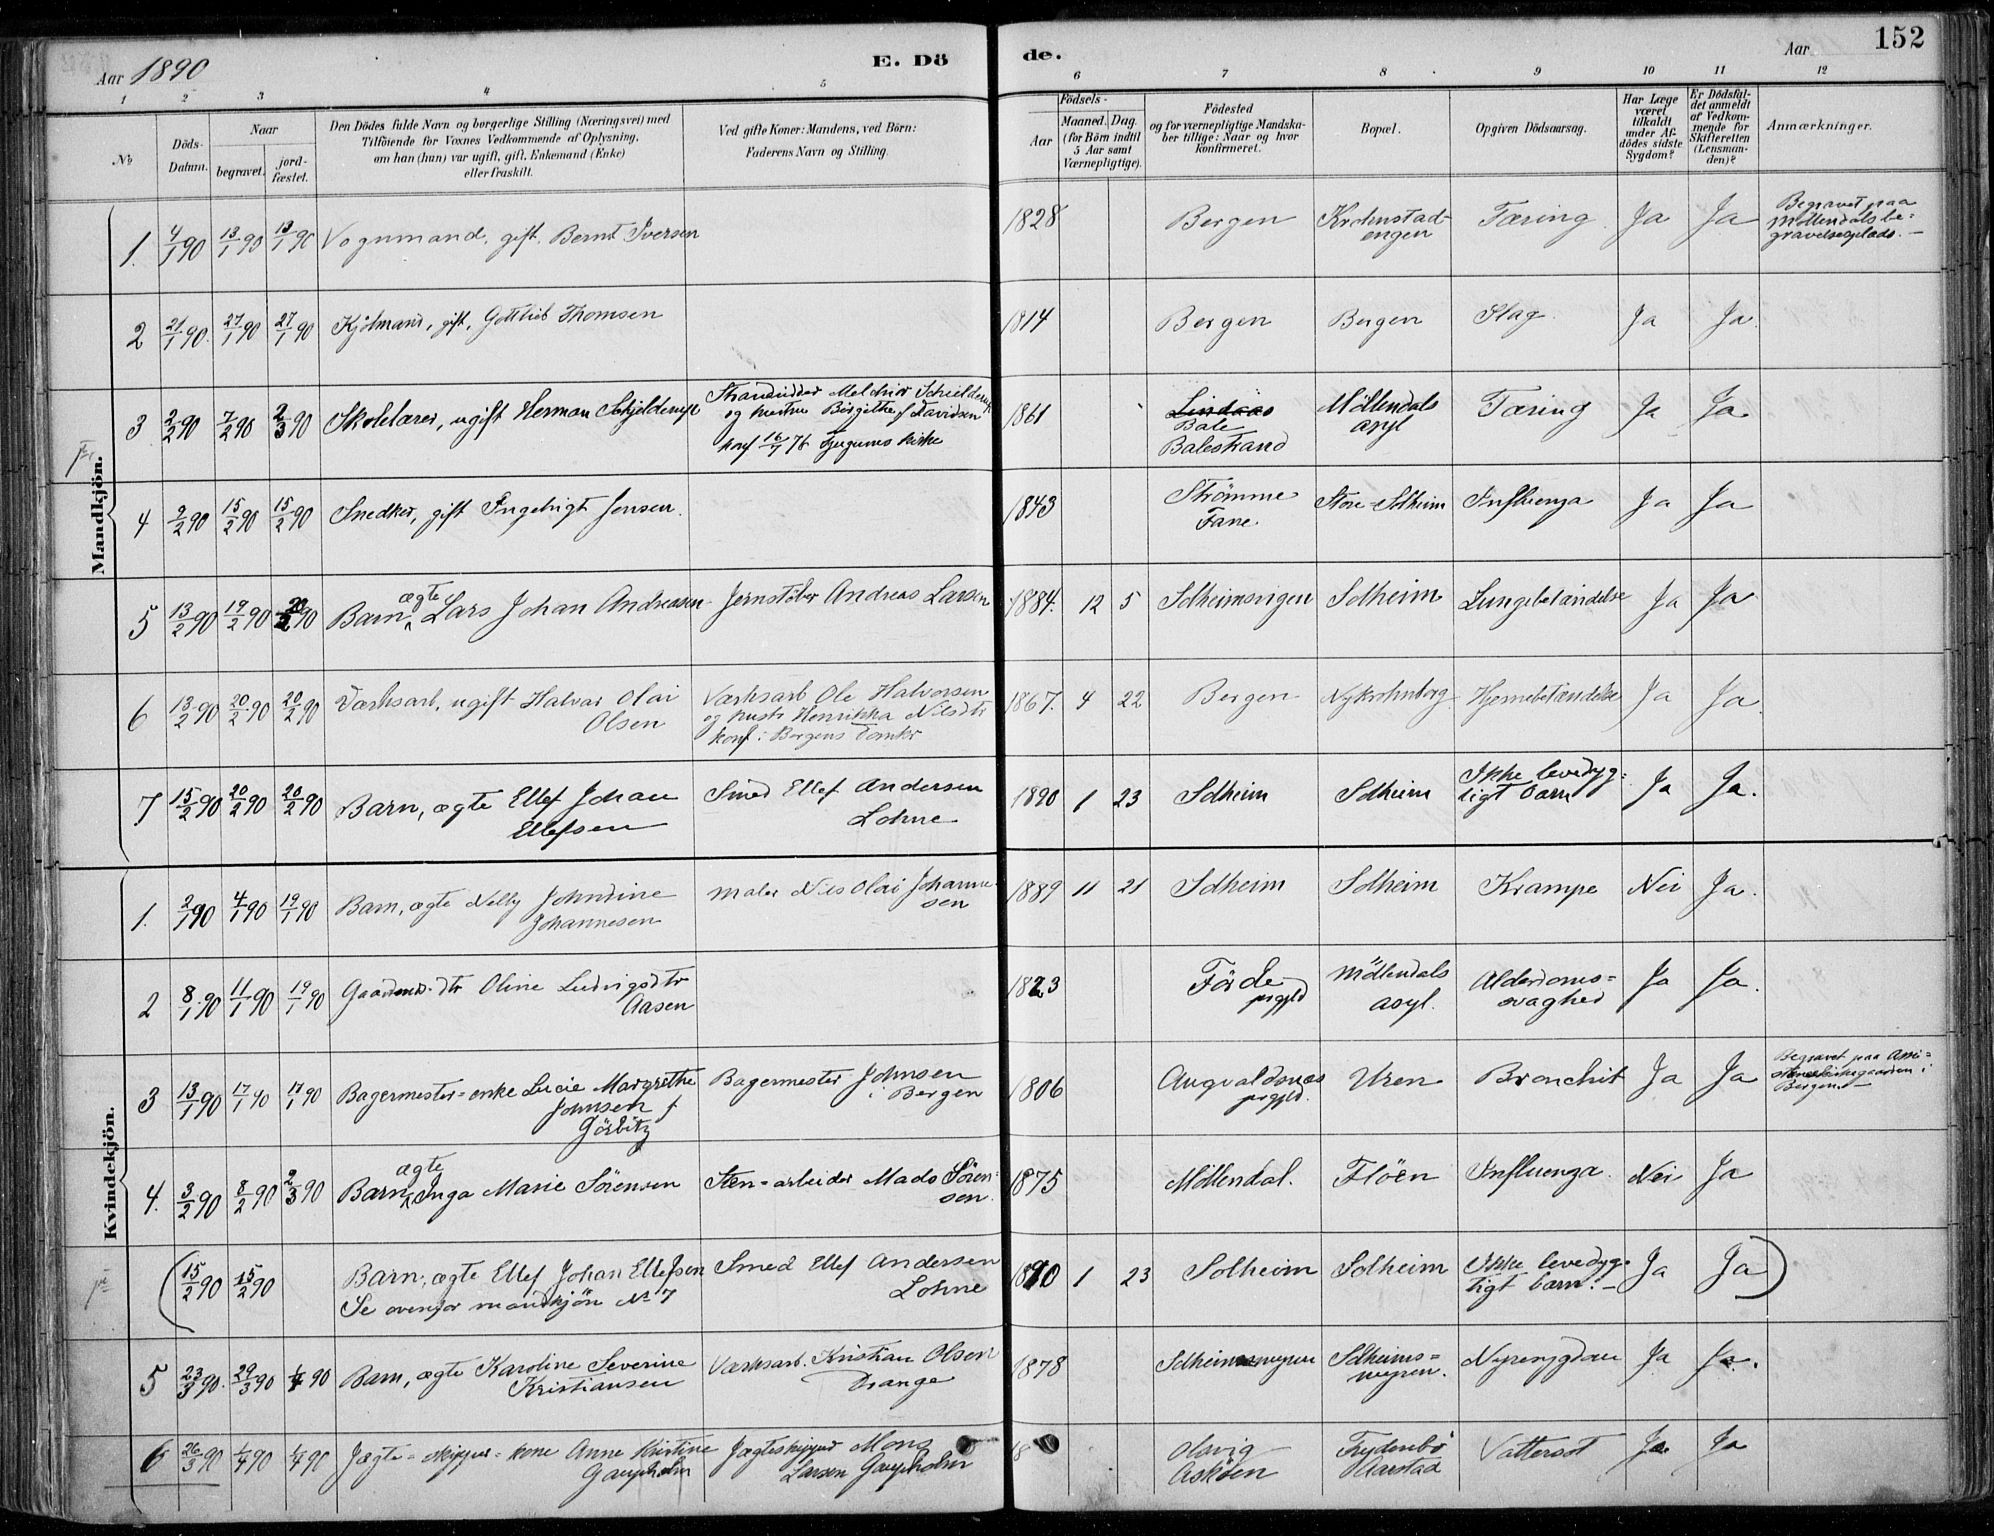 Aar 1890 E. Dö de. Aar 152
1 2 3 4 5 6 7 8 9 10 11 12
№
Döds-Datum.
Naar
begravet. jordfæstet.
Den Dödes fulde Navn og borgerlige Stilling (Næringsvei) med
Tilföiende for Voxnes Vedkommende af Oplysning,
om han (hun) var ugift, gift, Enkemand (Enke)
eller fraskilt.
Ved gifte Koner: Mandens, ved Börn:
Faderens Navn og Stilling.
Födsels-
Aar Maaned. Dag.
(for Börn indtil
5 Aar samt
Værnepligtige).
Födested
og for værnepligtige Mandska-
ber tillige: Naar og hvor
konfirmeret.
Bopæl.
Opgiven Dödsaarsag.
Har Læge
været
tilkaldt
under Af-
dödes sidste
Sygdom?
Er Dödsfal-
det anmeldt
af Vedkom-
mende for
Skifteretten
(Lensman-
den)?
Anmærkninger.
Mandkjön.
1. 4/1 90 13/1 90 13/1 90 Vognmand, gift, Bernt Iversen 1828 Bergen Krohnstad-
engen Tæring Ja Ja Begravet paa
Möllendals be-
gravelsesplads.-
2 21/1 90. 27/1 90 27/1 90 Kjölmand, gift, Gottlieb Thomsen 1814 Bergen Bergen Slag Ja Ja
3 2/2 90 7/2 90 2/3 90 Skolelærer, ugift Herman Schjelderup Strandsidder Melchior Schielderup
og hustru Birgithe f Davidsen
konf 16/7 76 kirke 1861 Lindaas
Bale
Balestrand Möllendals
asyl Tæring Ja Ja
4 9/2 90 15/2 90 15/2 90 Snedker, gift Ingebrigt Jensen. 1843 Strömme
Fane. Store-Solheim Influenza Ja Ja
5 13/2 90 19/2 90 90 Barn ægte Lars Johan Andreasen Jernstöber Andreas Larsen 1884. 12 5 Solheimsvigen Solheim Lungebetændelse Ja Ja
6 13/2 90 20/2 90 20/2 90 Værksarb, ugift Halvar Olai
Olsen Værksarb Ole Halvorsen
og hustr Henrikka Nilsdtr
konf i Bergens Domkr 1867. 4 22 Bergen Nykrohnborg Hjernebetændelse Ja Ja
7 15/2 90 20/2 90 20/2 90 Barn, ægte Ellef Johan
Ellefsen Smed Ellef Andersen
Lohne 1890 1 23 Solheim Solheim Ikke levedyg-
tigt barn Ja Ja.
Kvindekjön.
1. 2/1 90 4/1 90 19/1 90 Barn, ægte Nelly Johndine
Johannesen Maler Nils Olai Johanne-
sen 1889 11 21 Solheim Solheim Krampe Nei Ja.
2 8/1 90 11/1 90 19/1 90 Gaardmds.dtr Oline Ludvigsdtr
Aasen 1823 Förde
prgjld Möllendals
asyl. Alderdoms-
svaghed Ja Ja.
3 13/1 90 17/1 90 17/1 90 Bagermester-enke Lucie Margrethe
Johnsen f
Görbitz Bagermester Johnsen
i Bergen 1806 Augvaldsnes
prgjld. Uren Bronchit Ja Ja Begravet paa Assi-
stentskirkegaarden i
Bergen.-
4. 3/2 90 8/2 90 2/3 90 Barn ægte Inga Marie Sörensen Sten-arbeider Mads Sören-
sen. 1875 Möllendal. Flöen Influenza. Nei Ja
(15/2 90 15/2 90 Barn, ægte Ellef Johan Ellefsen
Se ovenfor mandkjön № 7 Smed Ellef Andersen
Lohne 1890 1 23 Solheim Solheim Ikke levedyg-
tigt barn.- Ja Ja)
5 23/3 90. 29/3 90 1/4 90 Barn, ægte Karoline Severine
Kristiansen Værksarb. Kristian Olsen
Drange 1878 Solheimsmyren Solheims-
myren. Nyresygdom Ja Ja.
6 26/3 90 1/4 90 1/4 90 Jægte-skipper-kone Anne Kristine
Gaupholm Jægteskipper Mons
Larsen Gaupholm 18 Olsvig
Asköen Frydenbö
Aarstad Vattersot Ja Ja